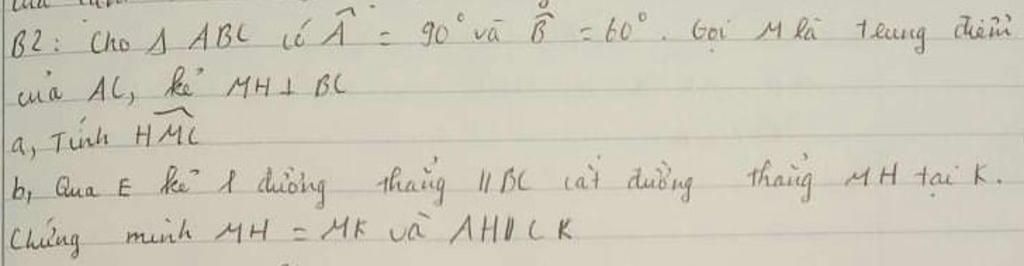 B2: Cho Δ ABC có Â = 90° và B̂ = 60°. Gọi M là trung điểm
của AC, kẻ MH ⊥ BC
a, Tính HMC
b, Qua E kẻ 1 đường thẳng // BC cắt đường thẳng MH tại K.
Chứng minh MH = MK và AH // CK